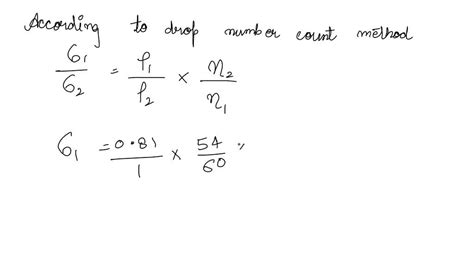 According to drop number count method
σ₁/σ₂ = ρ₁/ρ₂ × n₂/n₁
σ₁ = 0.81/1 × 54/60 ×